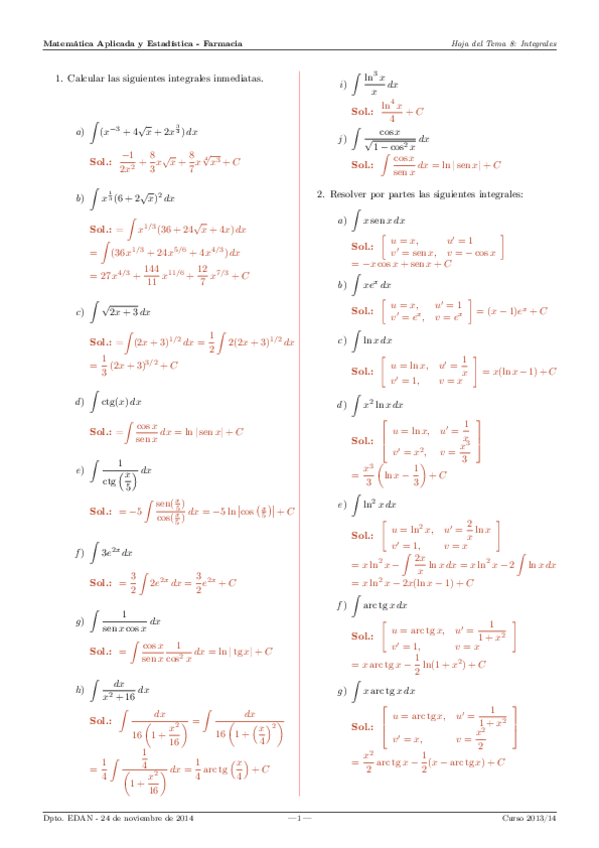 Matemática Aplicada y Estadística - Farmacia
Hoja del Tema 8: Integrales
1. Calcular las siguientes integrales inmediatas.
a) ∫(x⁻³ + 4√x + 2x^{3/4}) dx
Sol.: −1/(2x²) + (8/3)x√x + (8/7)x ∜(x³) + C
b) ∫ x^{1/3}(6 + 2√x)² dx
Sol.: = ∫ x^{1/3}(36 + 24√x + 4x) dx
= ∫(36x^{1/3} + 24x^{5/6} + 4x^{4/3}) dx
= 27x^{4/3} + (144/11) x^{11/6} + (12/7) x^{7/3} + C
c) ∫ √(2x + 3) dx
Sol.: = ∫(2x + 3)^{1/2} dx = (1/2) ∫ 2(2x + 3)^{1/2} dx
= (1/3) (2x + 3)^{3/2} + C
d) ∫ ctg(x) dx
Sol.: = ∫ (cos x / sen x) dx = ln |sen x| + C
e) ∫ 1/ctg(x/5) dx
Sol.: = −5 ∫ sen(x/5)/cos(x/5) dx = −5 ln |cos (x/5)| + C
f) ∫ 3e^{2x} dx
Sol.: = (3/2) ∫ 2e^{2x} dx = (3/2) e^{2x} + C
g) ∫ 1/(sen x cos x) dx
Sol.: = ∫ (cos x / sen x) (1 / cos² x) dx = ln | tg x| + C
h) ∫ dx/(x² + 16) dx
Sol.: ∫ dx / (16 (1 + x²/16)) = ∫ dx / (16 (1 + (x/4)²))
= (1/4) ∫ (1/4) / (1 + x²/16) dx = (1/4) arc tg (x/4) + C
i) ∫ (ln³ x / x) dx
Sol.: (ln⁴ x)/4 + C
j) ∫ cos x / √(1 − cos² x) dx
Sol.: ∫ (cos x / sen x) dx = ln | sen x| + C
2. Resolver por partes las siguientes integrales:
a) ∫ x sen x dx
Sol.: [ u = x, u′ = 1
v′ = sen x, v = − cos x ]
= −x cos x + sen x + C
b) ∫ xeˣ dx
Sol.: [ u = x, u′ = 1
v′ = eˣ, v = eˣ ] = (x − 1)eˣ + C
c) ∫ ln x dx
Sol.: [ u = ln x, u′ = 1/x
v′ = 1, v = x ] = x(ln x − 1) + C
d) ∫ x² ln x dx
Sol.: [ u = ln x, u′ = 1/x
v′ = x², v = x³/3 ]
= (x³/3) (ln x − 1/3) + C
e) ∫ ln² x dx
Sol.: [ u = ln² x, u′ = (2/x) ln x
v′ = 1, v = x ]
= x ln² x − ∫ (2x/x) ln x dx = x ln² x − 2 ∫ ln x dx
= x ln² x − 2x(ln x − 1) + C
f) ∫ arc tg x dx
Sol.: [ u = arc tg x, u′ = 1/(1 + x²)
v′ = 1, v = x ]
= x arc tg x − (1/2) ln(1 + x²) + C
g) ∫ x arc tg x dx
Sol.: [ u = arc tg x, u′ = 1/(1 + x²)
v′ = x, v = x²/2 ]
= (x²/2) arc tg x − (1/2)(x − arc tg x) + C
Dpto. EDAN - 24 de noviembre de 2014
— 1 —
Curso 2013/14